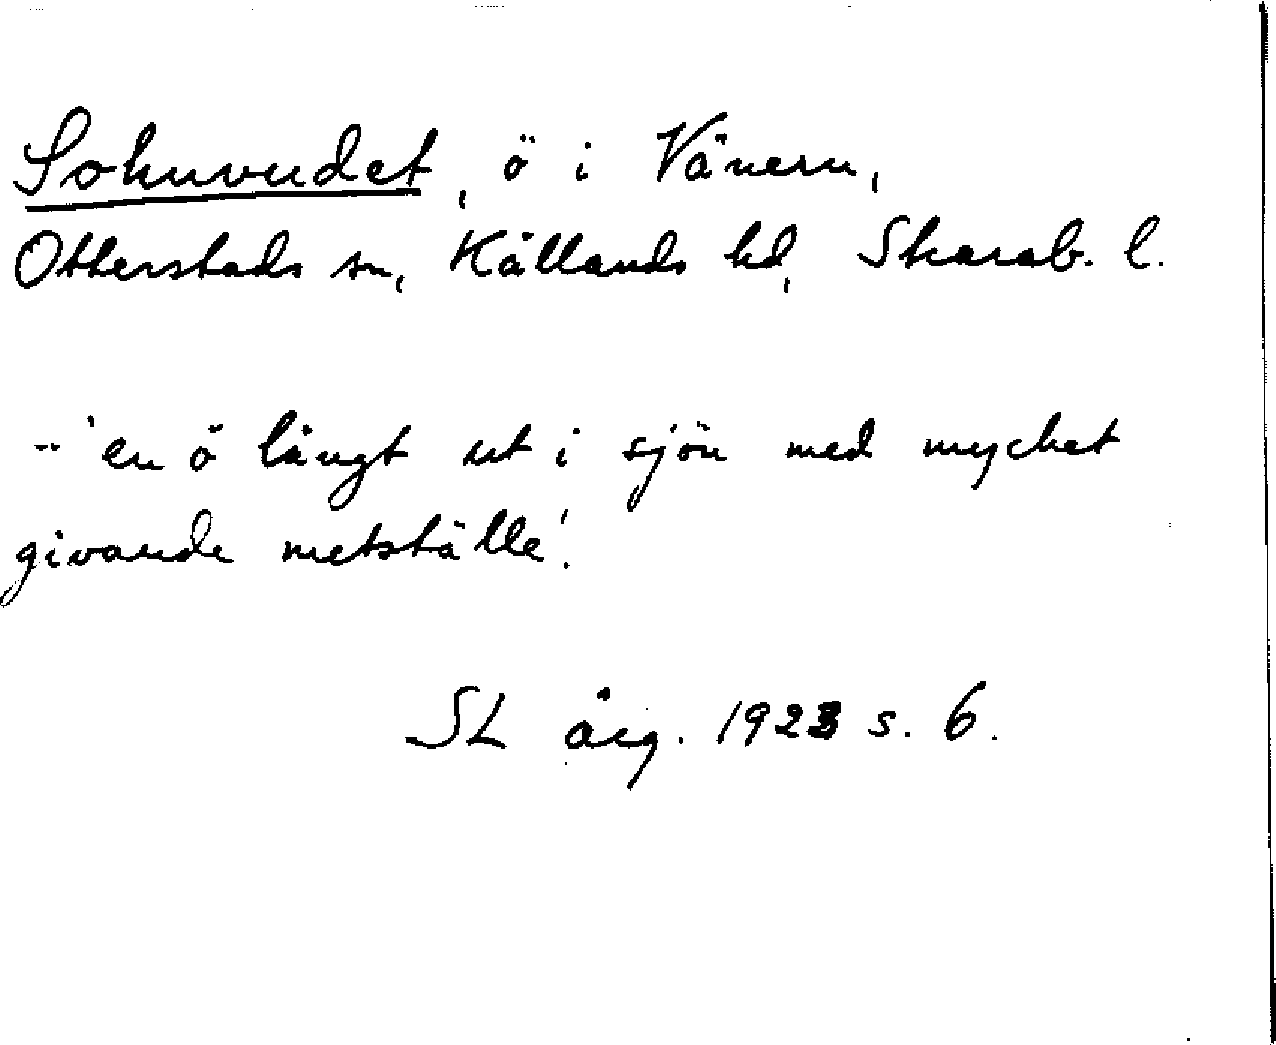 Sohuvudet, ö i Vänern,
Otterstads sn, Kållands hd, Skarab. l.
-- 'en ö långt ut i sjön med mycket
givande metställe'.
SL årg. 1923 s. 6.